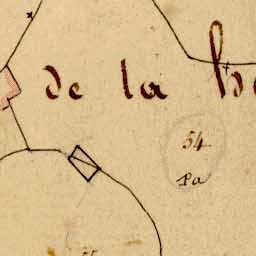 de la
54
Pa